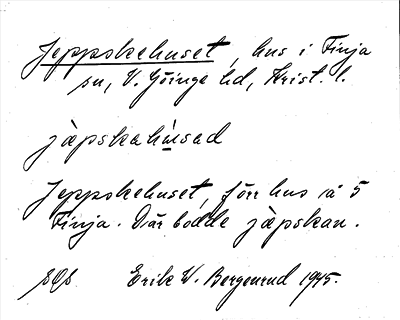 Jeppskehuset, hus i Finja
sn, V. Göinge hd, Krist. l.
jäpskahusad
Jeppskehuset, förr hus å 5
Finja. Där bodde jäpskan.
Erik W. Bergenrud 1945.